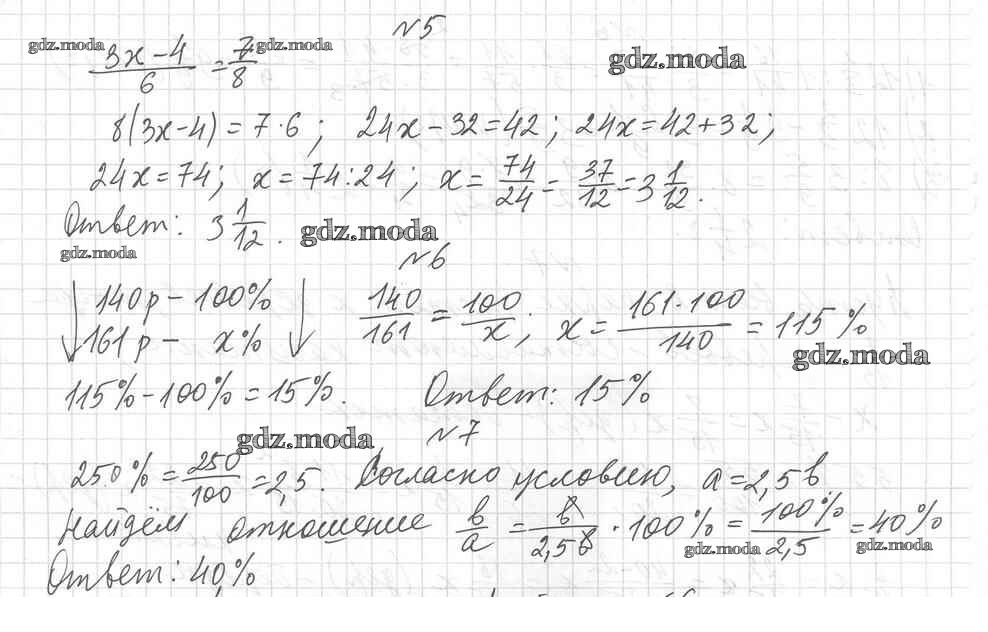 №5
gdz.moda
gdz.moda
gdz.moda
(3x-4)/6 = 7/8
8(3x-4) = 7·6; 24x-32=42; 24x=42+32;
24x=74; x=74:24; x= 74/24 = 37/12 = 3 1/12.
Ответ: 3 1/12. gdz.moda
gdz.moda
№6
↓ 140р - 100% ↓ 140/161 = 100/x; x= 161·100/140 = 115%
161р - x%
gdz.moda
115%-100%=15%. Ответ: 15%
gdz.moda
№7
250% = 250/100 = 2,5. Согласно условию, a=2,5b
Найдём отношение b/a = b/2,5b · 100% = 100%/2,5 = 40%
gdz.moda
gdz.moda
Ответ: 40%